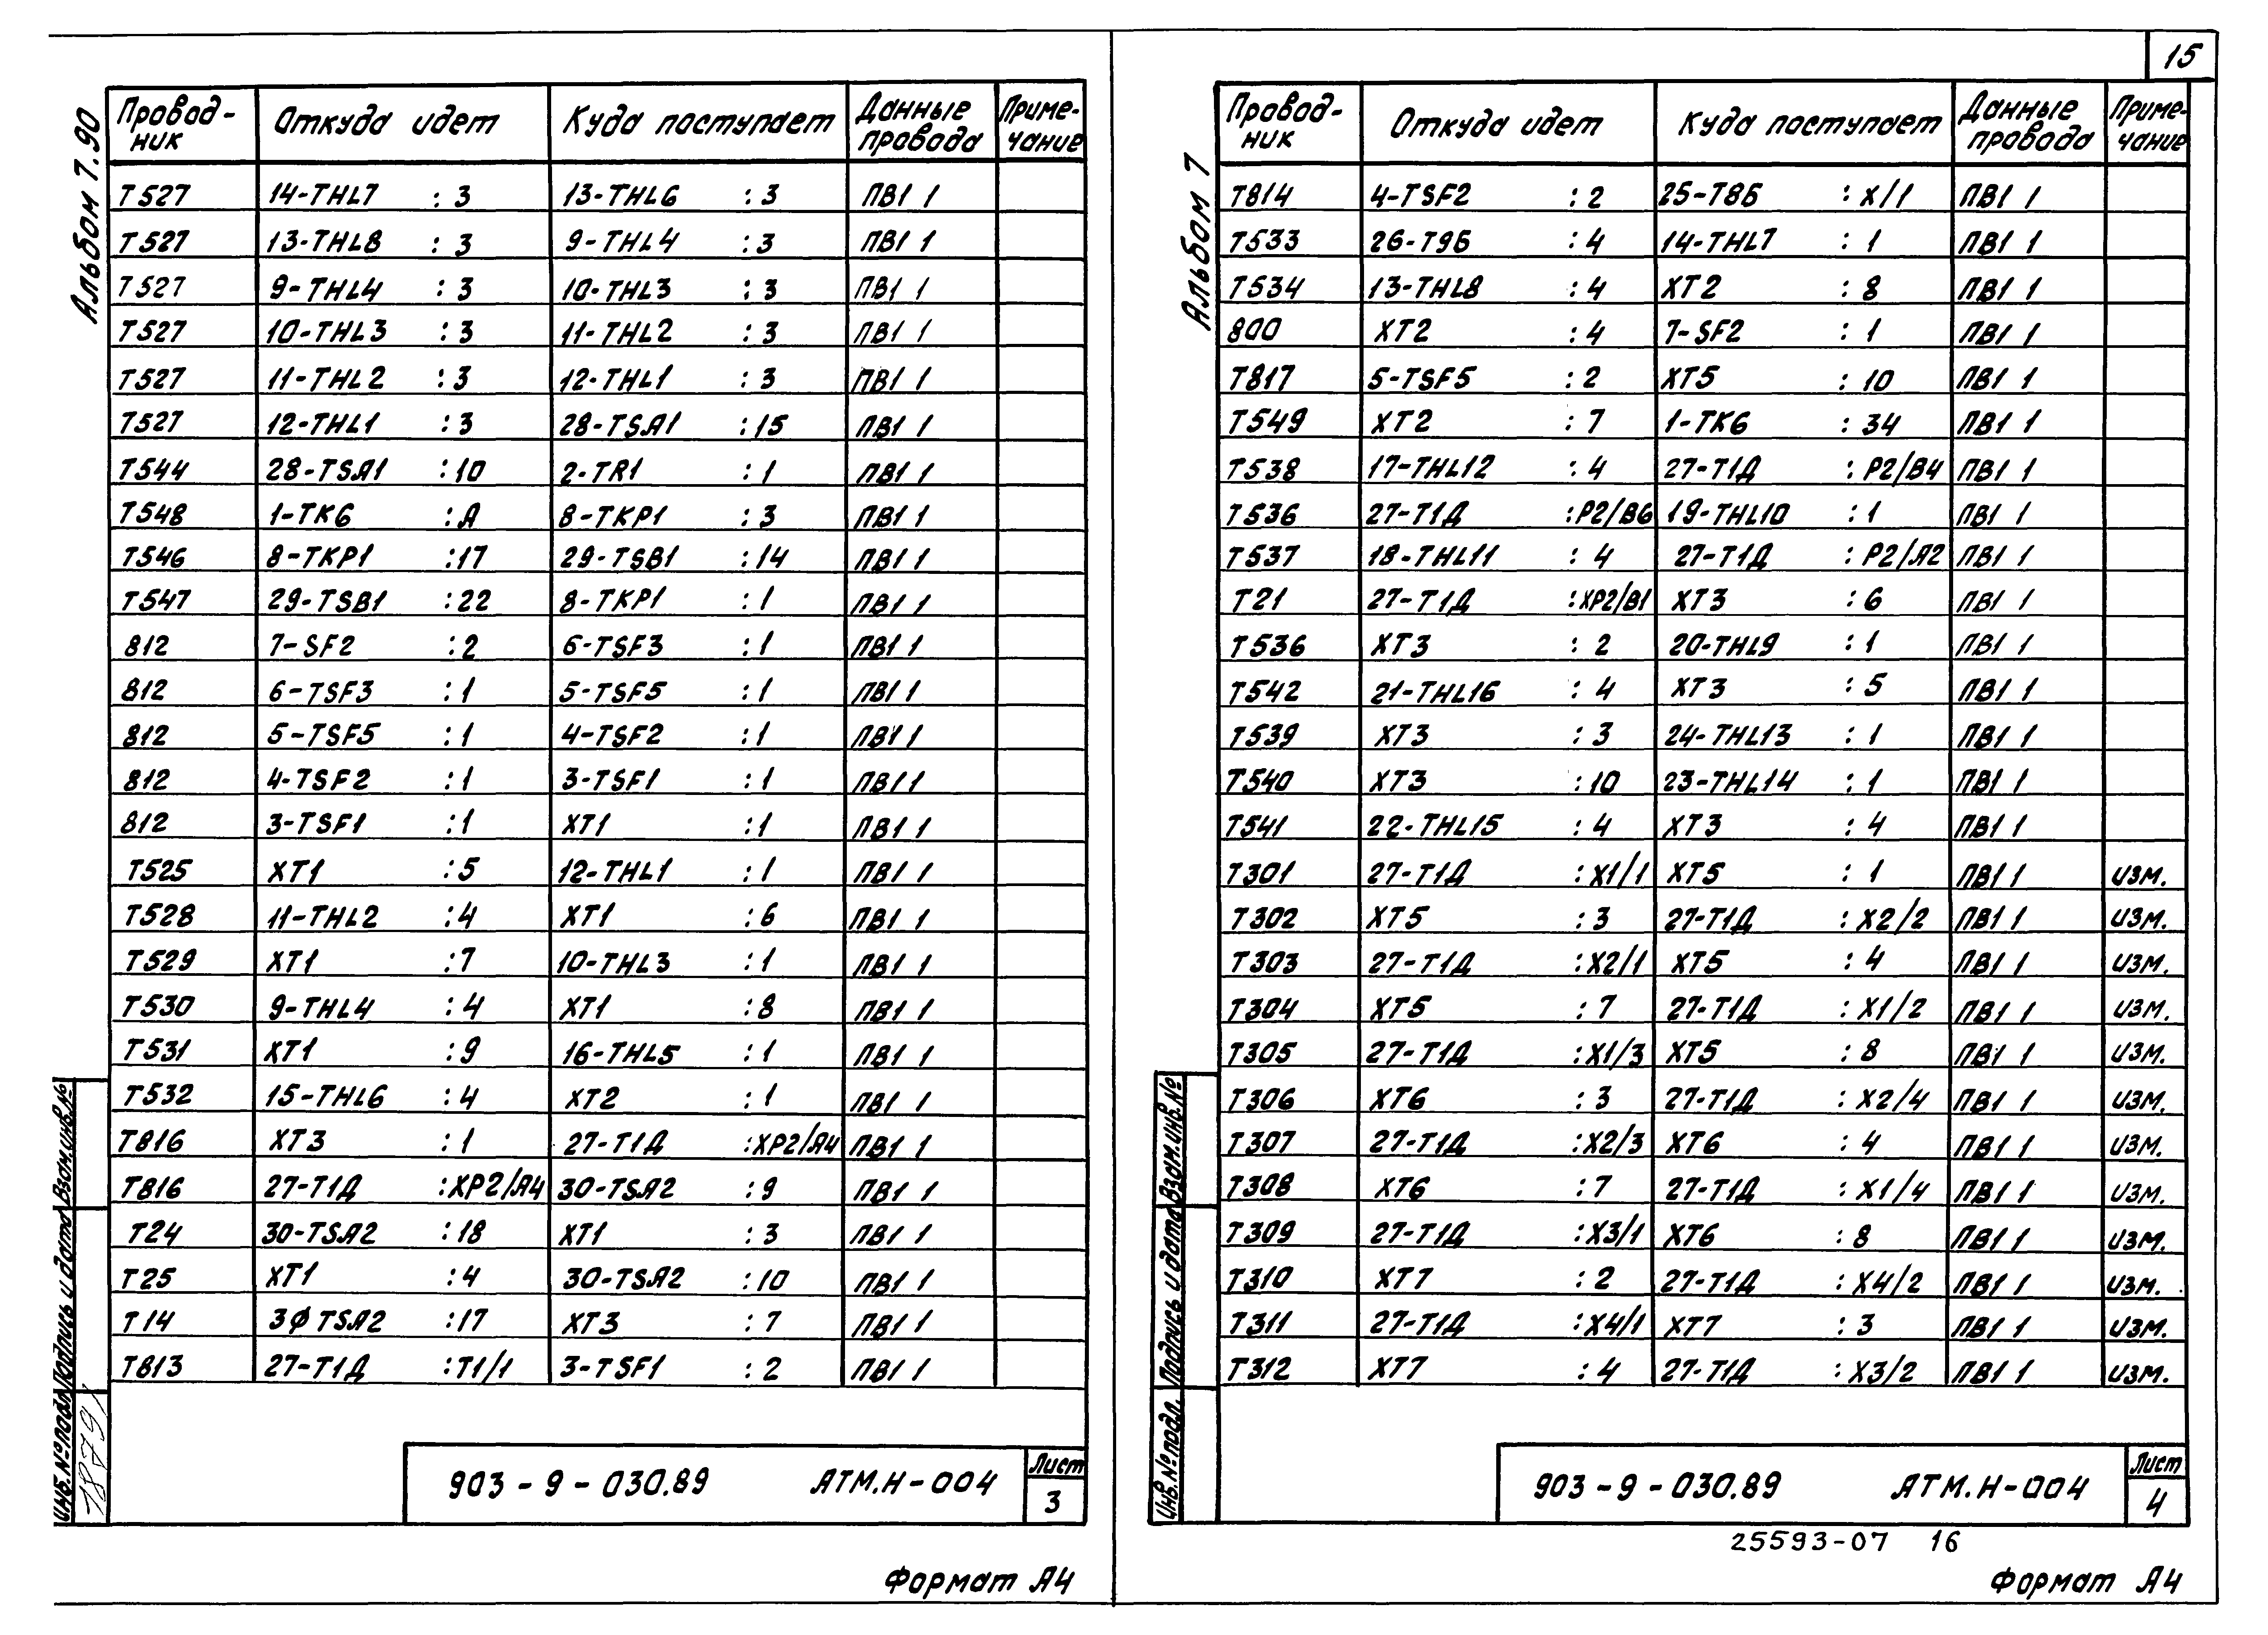 15
Альбом 7.90
Провод- Откуда идет Куда поступает Данные Приме-
ник провода чание
Т527 14-THL7 :3 13-THL6 :3 ПВ1 1
Т527 13-THL8 :3 9-THL4 :3 ПВ1 1
Т527 9-THL4 :3 10-THL3 :3 ПВ1 1
Т527 10-THL3 :3 11-THL2 :3 ПВ1 1
Т527 11-THL2 :3 12-THL1 :3 ПВ1 1
Т527 12-THL1 :3 28-TSA1 :15 ПВ1 1
Т544 28-TSA1 :10 2-TR1 :1 ПВ1 1
Т548 1-TK6 :A 8-TKP1 :3 ПВ1 1
Т546 8-TKP1 :17 29-TSB1 :14 ПВ1 1
Т547 29-TSB1 :22 8-TKP1 :1 ПВ1 1
812 7-SF2 :2 6-TSF3 :1 ПВ1 1
812 6-TSF3 :1 5-TSF5 :1 ПВ1 1
812 5-TSF5 :1 4-TSF2 :1 ПВ1 1
812 4-TSF2 :1 3-TSF1 :1 ПВ1 1
812 3-TSF1 :1 XT1 :1 ПВ1 1
Т525 XT1 :5 12-THL1 :1 ПВ1 1
Т528 11-THL2 :4 XT1 :6 ПВ1 1
Т529 XT1 :7 10-THL3 :1 ПВ1 1
Т530 9-THL4 :4 XT1 :8 ПВ1 1
Т531 XT1 :9 16-THL5 :1 ПВ1 1
Т532 15-THL6 :4 XT2 :1 ПВ1 1
Т816 XT3 :1 27-Т1Д :XP2/A4 ПВ1 1
Т816 27-Т1Д :XP2/A4 30-TSA2 :9 ПВ1 1
Т24 30-TSA2 :18 XT1 :3 ПВ1 1
Т25 XT1 :4 30-TSA2 :10 ПВ1 1
Т14 3ØTSA2 :17 XT3 :7 ПВ1 1
Т813 27-Т1Д :T1/1 3-TSF1 :2 ПВ1 1
Взам.инв.№
Подпись и дата
Инв.№подл.
18791
903-9-030.89 АТМ.Н-004 Лист
3
Формат А4
Альбом 7
Провод- Откуда идет Куда поступает Данные Приме-
ник провода чание
Т814 4-TSF2 :2 25-Т8Б :X/1 ПВ1 1
Т533 26-Т9Б :4 14-THL7 :1 ПВ1 1
Т534 13-THL8 :4 XT2 :8 ПВ1 1
800 XT2 :4 7-SF2 :1 ПВ1 1
Т817 5-TSF5 :2 XT5 :10 ПВ1 1
Т549 XT2 :7 1-TK6 :34 ПВ1 1
Т538 17-THL12 :4 27-Т1Д :P2/B4 ПВ1 1
Т536 27-Т1Д :P2/B6 19-THL10 :1 ПВ1 1
Т537 18-THL11 :4 27-Т1Д :P2/A2 ПВ1 1
Т21 27-Т1Д :XP2/B1 XT3 :6 ПВ1 1
Т536 XT3 :2 20-THL9 :1 ПВ1 1
Т542 21-THL16 :4 XT3 :5 ПВ1 1
Т539 XT3 :3 24-THL13 :1 ПВ1 1
Т540 XT3 :10 23-THL14 :1 ПВ1 1
Т541 22-THL15 :4 XT3 :4 ПВ1 1
Т301 27-Т1Д :X1/1 XT5 :1 ПВ1 1 изм.
Т302 XT5 :3 27-Т1Д :X2/2 ПВ1 1 изм.
Т303 27-Т1Д :X2/1 XT5 :4 ПВ1 1 изм.
Т304 XT5 :7 27-Т1Д :X1/2 ПВ1 1 изм.
Т305 27-Т1Д :X1/3 XT5 :8 ПВ1 1 изм.
Т306 XT6 :3 27-Т1Д :X2/4 ПВ1 1 изм.
Т307 27-Т1Д :X2/3 XT6 :4 ПВ1 1 изм.
Т308 XT6 :7 27-Т1Д :X1/4 ПВ1 1 изм.
Т309 27-Т1Д :X3/1 XT6 :8 ПВ1 1 изм.
Т310 XT7 :2 27-Т1Д :X4/2 ПВ1 1 изм.
Т311 27-Т1Д :X4/1 XT7 :3 ПВ1 1 изм.
Т312 XT7 :4 27-Т1Д :X3/2 ПВ1 1 изм.
Взам.инв.№
Подпись и дата
Инв.№подл.
903-9-030.89 АТМ.Н-004 Лист
4
25593-07 16
Формат А4